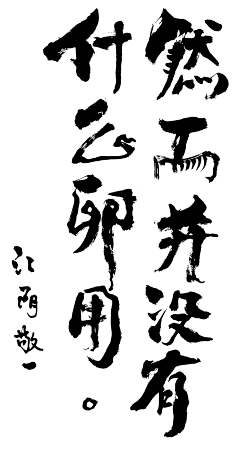 然而并没有
什么卵用。
江阴敬一